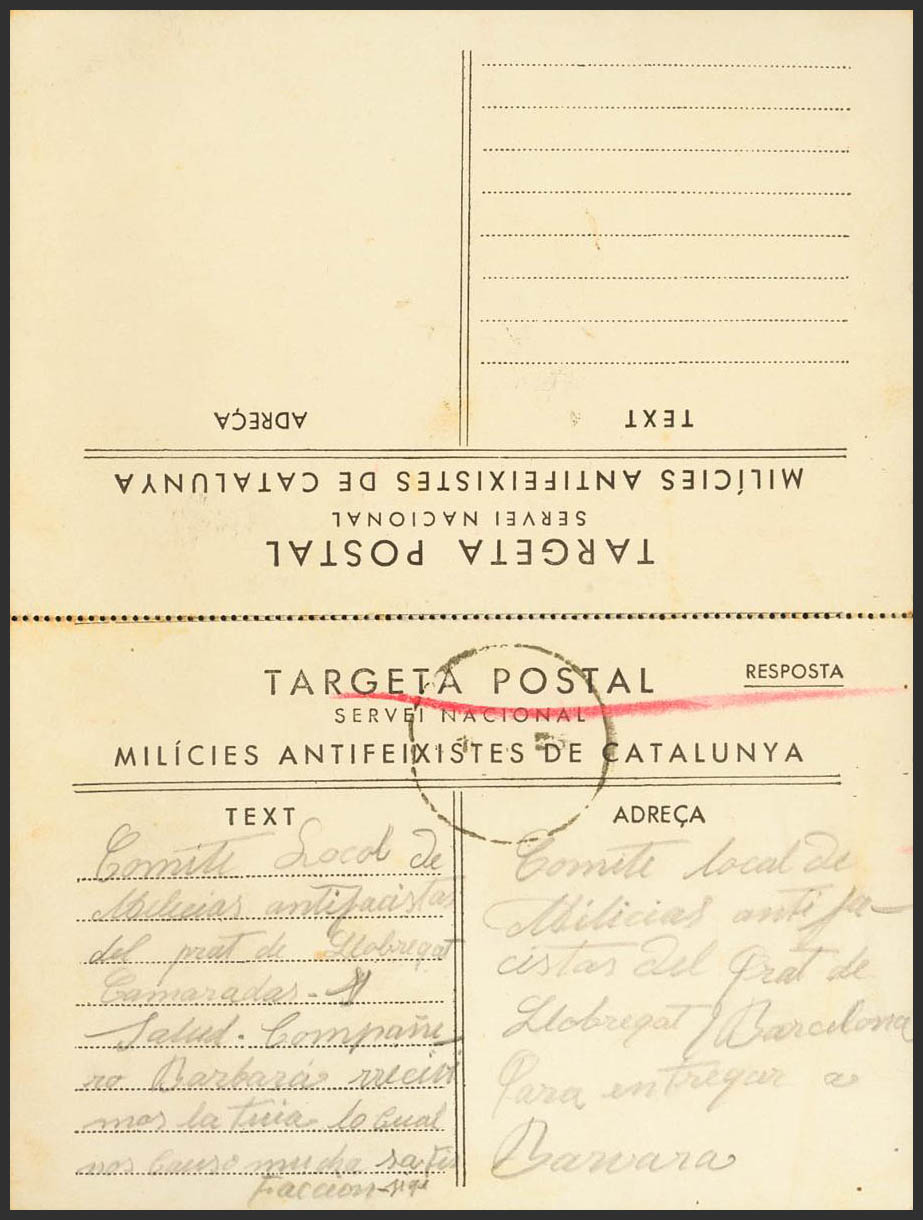 TEXT
ADREÇA
MILÍCIES ANTIFEIXISTES DE CATALUNYA
SERVEI NACIONAL
TARGETA POSTAL
TARGETA POSTAL
RESPOSTA
SERVEI NACIONAL
MILÍCIES ANTIFEIXISTES DE CATALUNYA
TEXT
Comite Local de
Milicias antifacistas
del prat de Llobregat
Camaradas -
Salud. Compañe
ro Barbara rrecivi
mos la tuia lo cual
nos causo mucha satis
faccion -
ADREÇA
Comite local de
Milicias anti fa-
cistas del Prat de
Llobregat / Barcelona
Para entregar a
Barvara